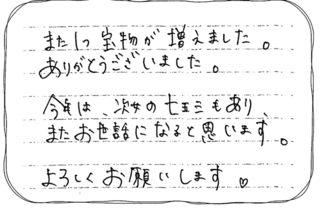 また1つ宝物が増えました。
ありがとうございました。
今年は、次女の七五三もあり、
またお世話になると思います。
よろしくお願いします♡